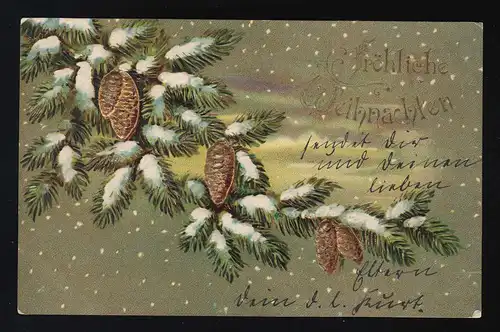 Fröhliche
Weihnachten
sendet Dir
und deinen
lieben
Eltern
dein d. l. Kurt.